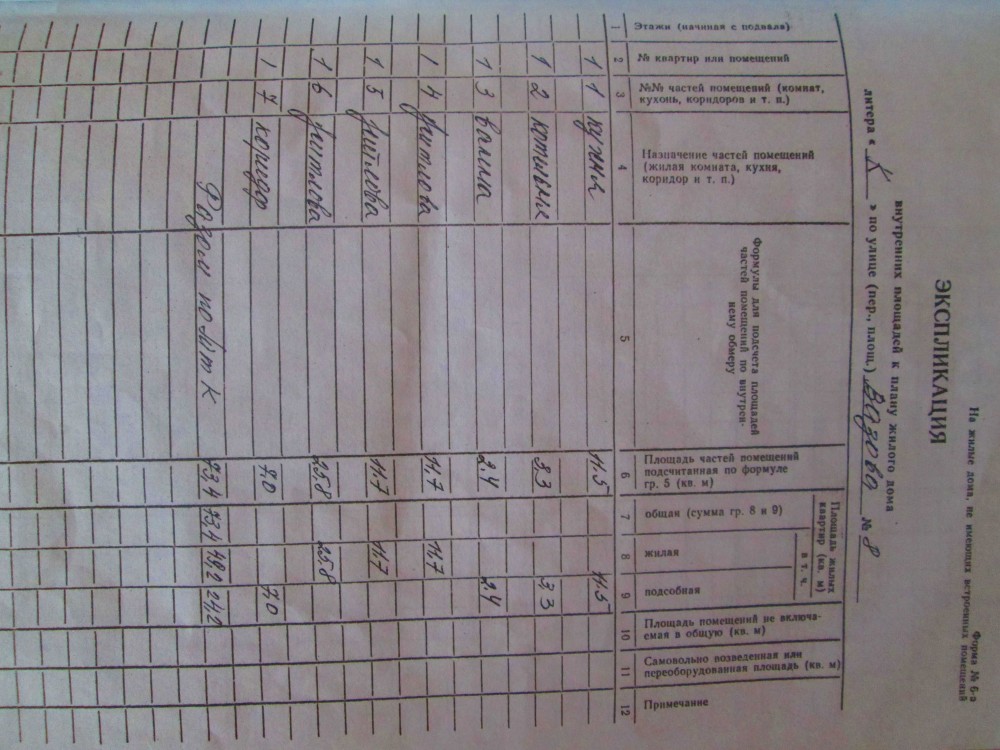 Форма № 6-в
На жилые дома, не имеющих встроенных помещений
ЭКСПЛИКАЦИЯ
внутренних площадей к плану жилого дома
литера « К » по улице (пер., площ.) № 8
Этажи (начиная с подвала)
№ квартир или помещений
№№ частей помещений (комнат, кухонь, коридоров и т. п.)
Назначение частей помещений (жилая комната, кухня, коридор и т. п.)
Формулы для подсчета площадей частей помещений по внутреннему обмеру
Площадь частей помещений подсчитанная по формуле гр. 5 (кв. м)
Площадь жилых квартир (кв. м)
общая (сумма гр. 8 и 9)
в т. ч.
жилая
подсобная
Площадь помещений не включаемая в общую (кв. м)
Самовольно возведенная или переоборудованная площадь (кв. м)
Примечание
1 2 3 4 5 6 7 8 9 10 11 12
1 1 кухня 11.5 11.5
1 2 3.3 3,3
1 3 2.4 2.4
1 4 11.7 11.7
1 5 11.7 11.7
1 6 25.8 25.8
1 7 коридор 7.0 7.0
по лит К 73,4 73,4 49,2 24,2